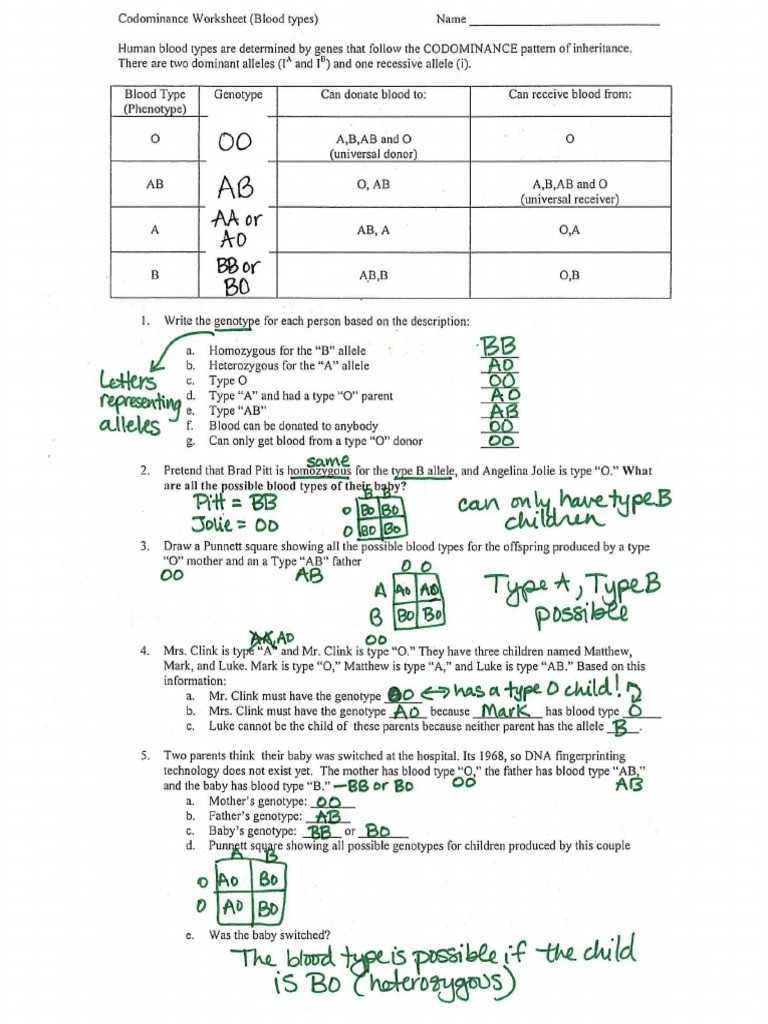 Codominance Worksheet (Blood types) Name
Human blood types are determined by genes that follow the CODOMINANCE pattern of inheritance.
There are two dominant alleles (I^A and I^B) and one recessive allele (i).
Blood Type (Phenotype) Genotype Can donate blood to: Can receive blood from:
O OO A,B,AB and O (universal donor) O
AB AB O, AB A,B,AB and O (universal receiver)
A AA or AO AB, A O,A
B BB or BO AB,B O,B
1. Write the genotype for each person based on the description:
Letters representing alleles
a. Homozygous for the "B" allele BB
b. Heterozygous for the "A" allele AO
c. Type O OO
d. Type "A" and had a type "O" parent AO
e. Type "AB" AB
f. Blood can be donated to anybody OO
g. Can only get blood from a type "O" donor OO
same
2. Pretend that Brad Pitt is homozygous for the type B allele, and Angelina Jolie is type "O." What
are all the possible blood types of their baby?
Pitt = BB
Jolie = OO
B B
O BO BO
O BO BO
can only have type B
children
3. Draw a Punnett square showing all the possible blood types for the offspring produced by a type
"O" mother and an a Type "AB" father
OO AB
O O
A AO AO
B BO BO
Type A, Type B
possible
AA, AO OO
4. Mrs. Clink is type "A" and Mr. Clink is type "O." They have three children named Matthew,
Mark, and Luke. Mark is type "O," Matthew is type "A," and Luke is type "AB." Based on this
information:
a. Mr. Clink must have the genotype OO ↔ has a type O child!
b. Mrs. Clink must have the genotype AO because Mark has blood type O
c. Luke cannot be the child of these parents because neither parent has the allele B.
5. Two parents think their baby was switched at the hospital. Its 1968, so DNA fingerprinting
technology does not exist yet. The mother has blood type "O," the father has blood type "AB,"
and the baby has blood type "B." – BB or BO OO AB
a. Mother's genotype: OO
b. Father's genotype: AB
c. Baby's genotype: BB or BO
d. Punnett square showing all possible genotypes for children produced by this couple
A B
O AO BO
O AO BO
e. Was the baby switched?
The blood type is possible if the child
is BO (heterozygous)